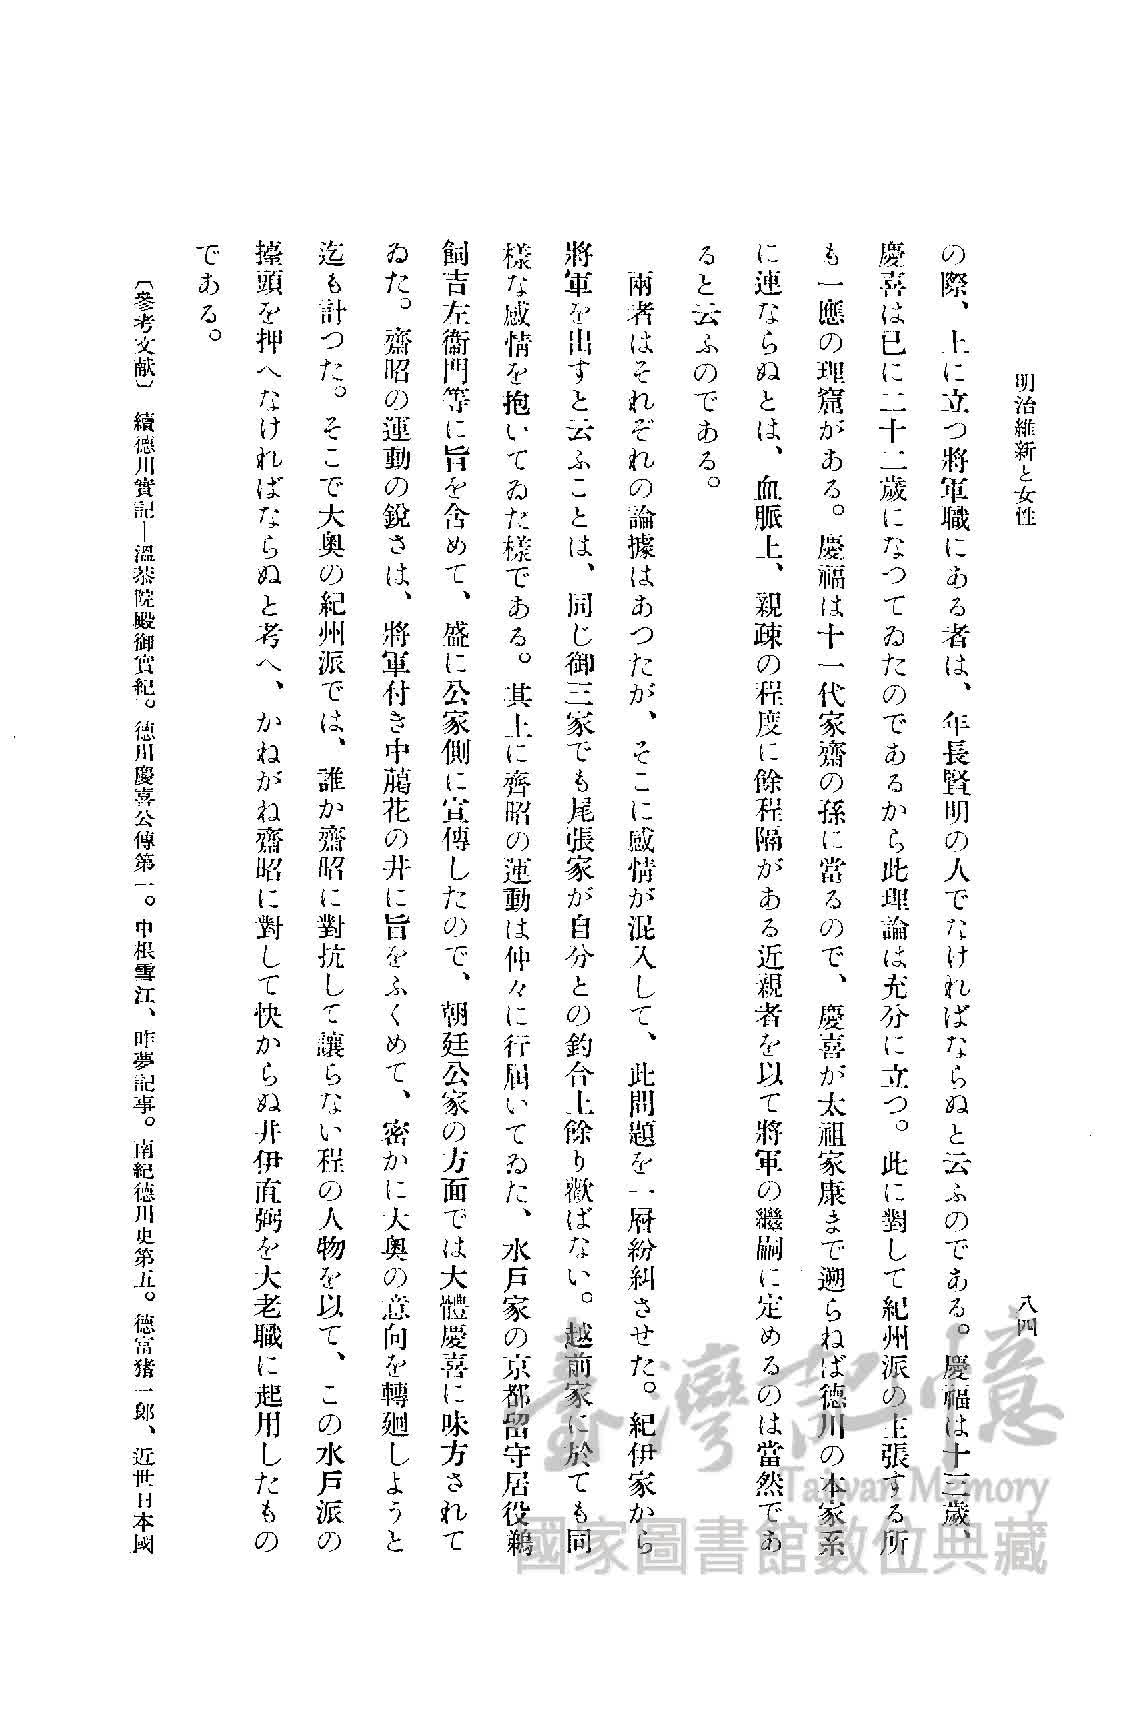 明治維新と女性
八四
の際、上に立つ將軍職にある者は、年長賢明の人でなければならぬと云ふのである。慶福は十三歳、
慶喜は已に二十二歳になつてゐたのであるから此理論は充分に立つ。此に對して紀州派の主張する所
も一應の理窟がある。慶福は十一代家齋の孫に當るので、慶喜が太祖家康まで遡らねば德川の本家系
に連ならぬとは、血脈上、親疎の程度に餘程隔がある近親者を以て將軍の繼嗣に定めるのは當然であ
ると云ふのである。
兩者はそれぞれの論據はあつたが、そこに感情が混入して、此問題を一層紛糾させた。紀伊家から
將軍を出すと云ふことは、同じ御三家でも尾張家が自分との釣合上餘り歡ばない。越前家に於ても同
樣な感情を抱いてゐた樣である。其上に齊昭の運動は仲々に行屆いてゐた、水戸家の京都留守居役鵜
飼吉左衞門等に旨を含めて、盛に公家側に宣傳したので、朝廷公家の方面では大體慶喜に味方されて
ゐた。齋昭の運動の鋭さは、將軍付き中﨟花の井に旨をふくめて、密かに大奥の意向を轉廻しようと
迄も計つた。そこで大奥の紀州派では、誰か齋昭に對抗して讓らない程の人物を以て、この水戸派の
擡頭を押へなければならぬと考へ、かねがね齋昭に對して快からぬ井伊直弼を大老職に起用したもの
である。
〔參考文献〕 續德川實記―溫恭院殿御實紀。德川慶喜公傳第一。中根雪江、昨夢記事。南紀德川史第五。德富猪一郎、近世日本國
臺灣記憶
Taiwan Memory
國家圖書館數位典藏